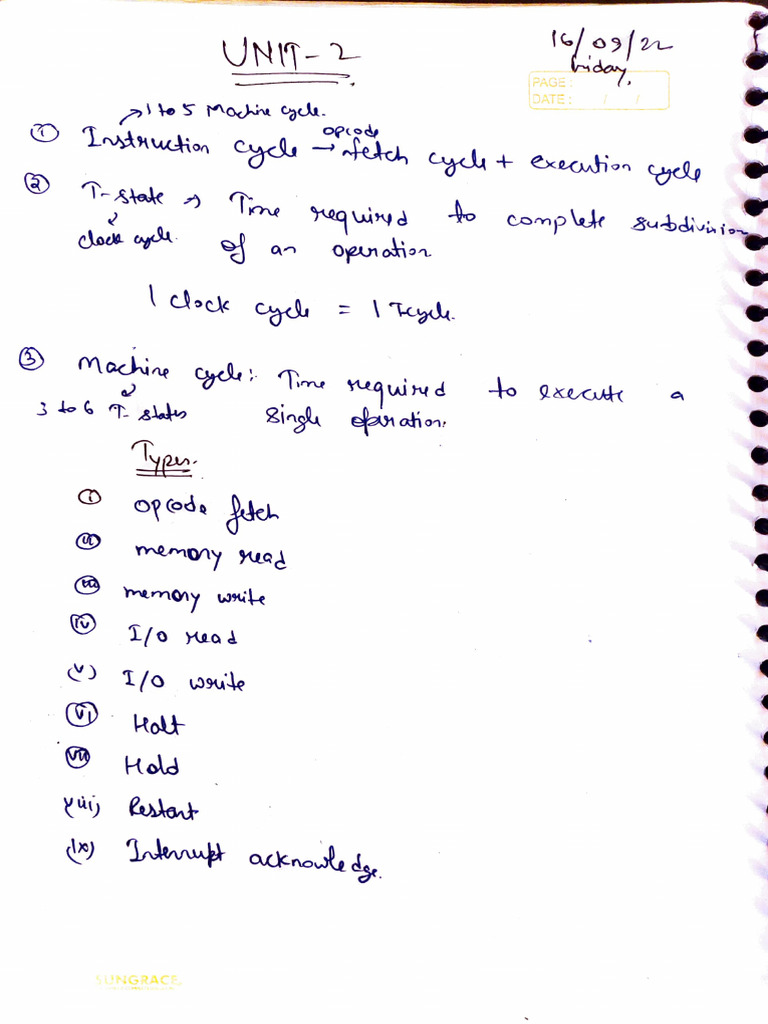 UNIT-2
16/09/22
Friday.
PAGE:
DATE: / /
→ 1 to 5 Machine cycle.
① Instruction cycle → opcode fetch cycle + execution cycle
② T-state → Time required to complete subdivision
clock cycle. of an operation
1 clock cycle = 1 T-cycle.
③ Machine cycle: Time required to execute a
3 to 6 T-states single operation.
Types.
(i) opcode fetch
(ii) memory read
(iii) memory write
(iv) I/O read
(v) I/O write
(vi) Halt
(vii) Hold
(viii) Restart
(ix) Interrupt acknowledge.
SUNGRACE